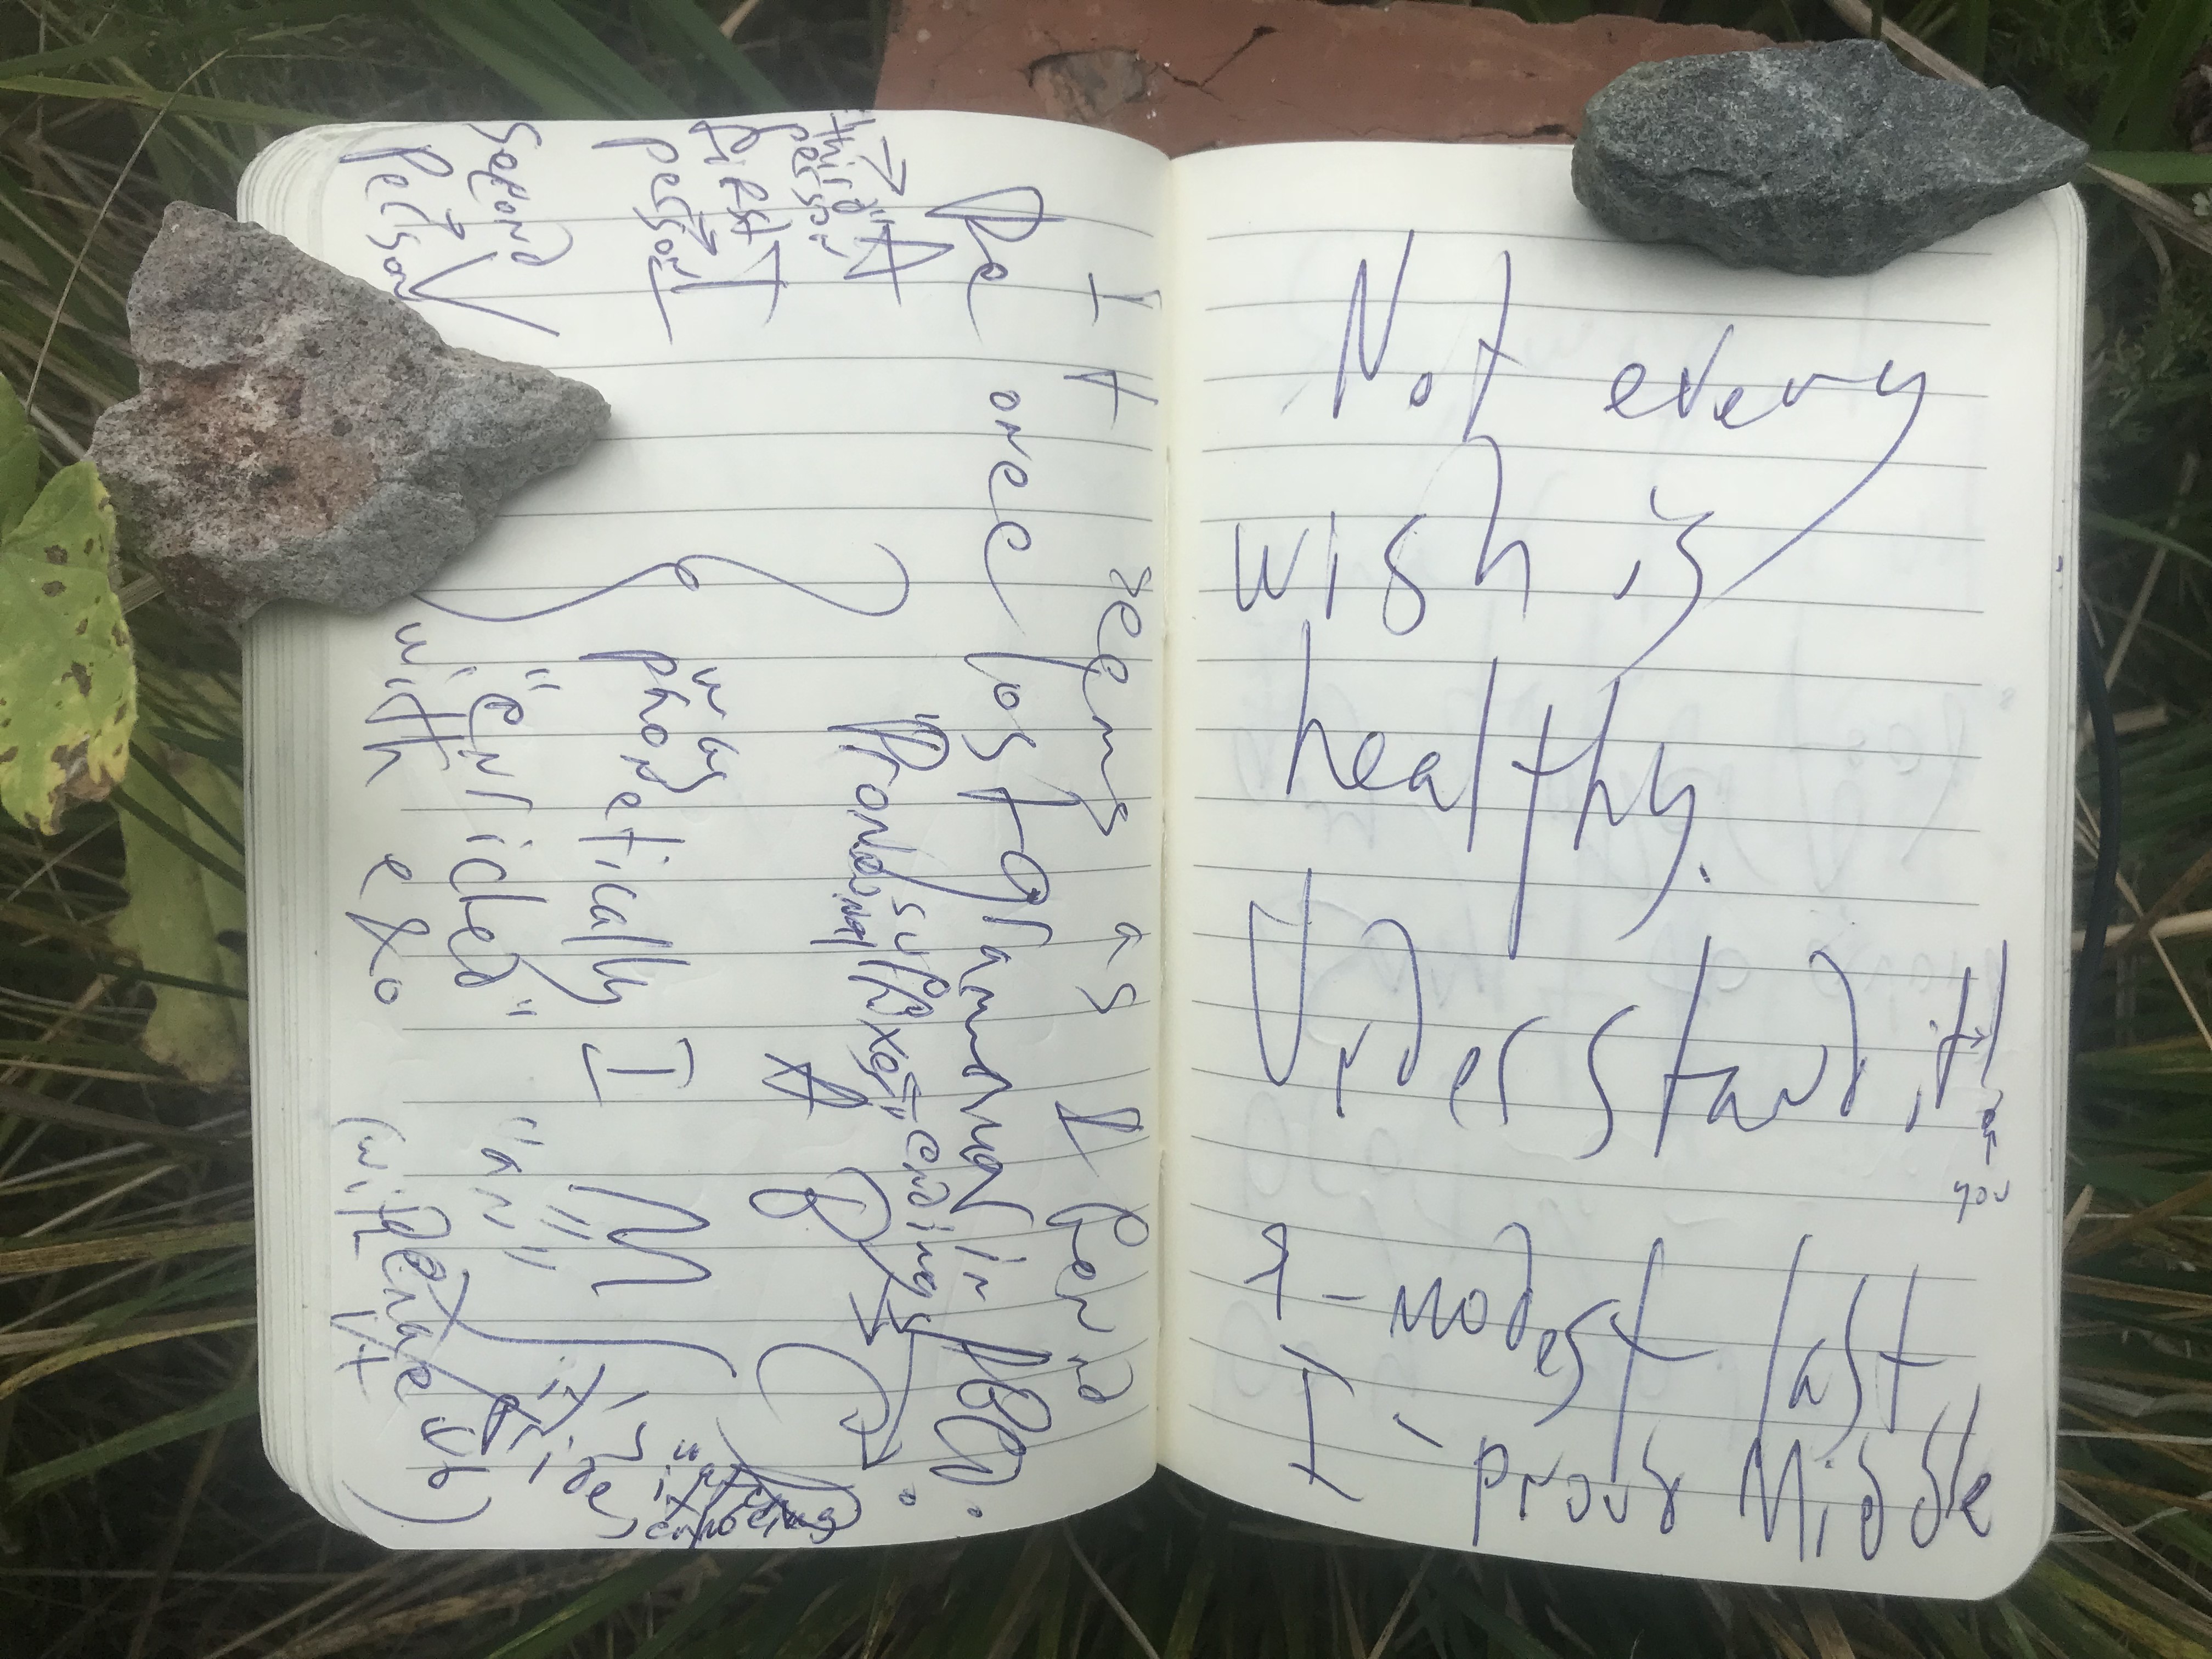 Not every
wish is
healthy.
Understand it!
you
Я - modest last
I - proud middle
It seems as I found
the once lost grammar in ABCD:
"Pronounal
suffixes" endings
A
B
C
"third"
person
A
first
person
I
second
person
V
was
phonetically
"enriched"
with exo
I
M
=
"an"
(with
it